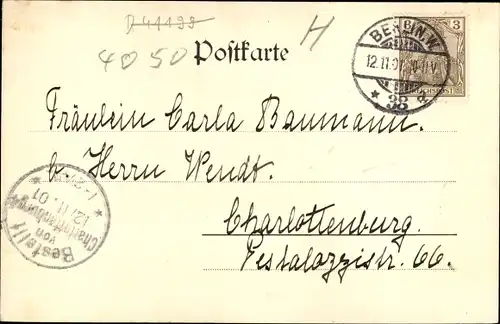 D 41199
4050
H
Postkarte
BERLIN.W.
12.11.01. 10-11V.
* 38 a.
3
REICHSPOST
Fräulein Carla Baumann.
b. Herrn Wendt.
Charlottenburg.
Pestalozzistr. 66.
Bestellt
von
Charlottenburg
12.11.01